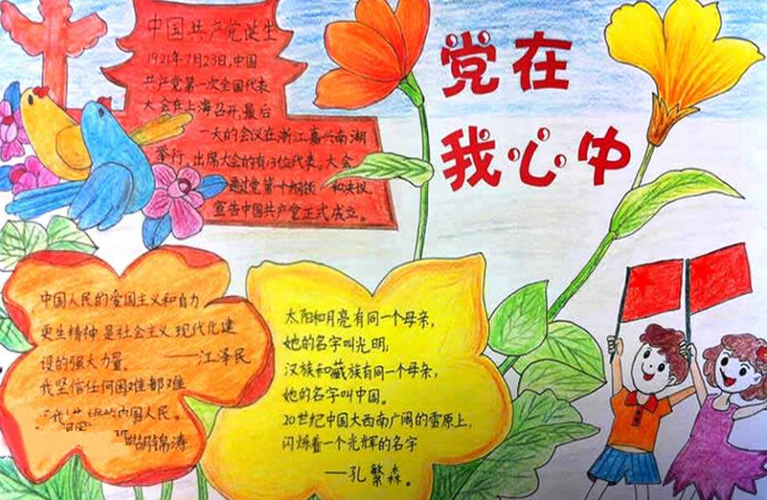 中国共产党诞生
1921年7月23日,中国
共产党第一次全国代表
大会在上海召开,最后
一天的会议在浙江嘉兴南湖
举行。出席大会的有13位代表。大会
通过党第一个纲领 和决议,
宣告中国共产党正式成立。
党在
我心中
中国人民的爱国主义和自力
更生精神是社会主义现代化建
设的强大力量。 ——江泽民
我坚信任何困难都难
中国人民。
胡锦涛
太阳和月亮有同一个母亲,
她的名字叫光明,
汉族和藏族有同一个母亲,
她的名字叫中国。
20世纪中国大西南广阔的雪原上,
闪烁着一个光辉的名字
——孔繁森。